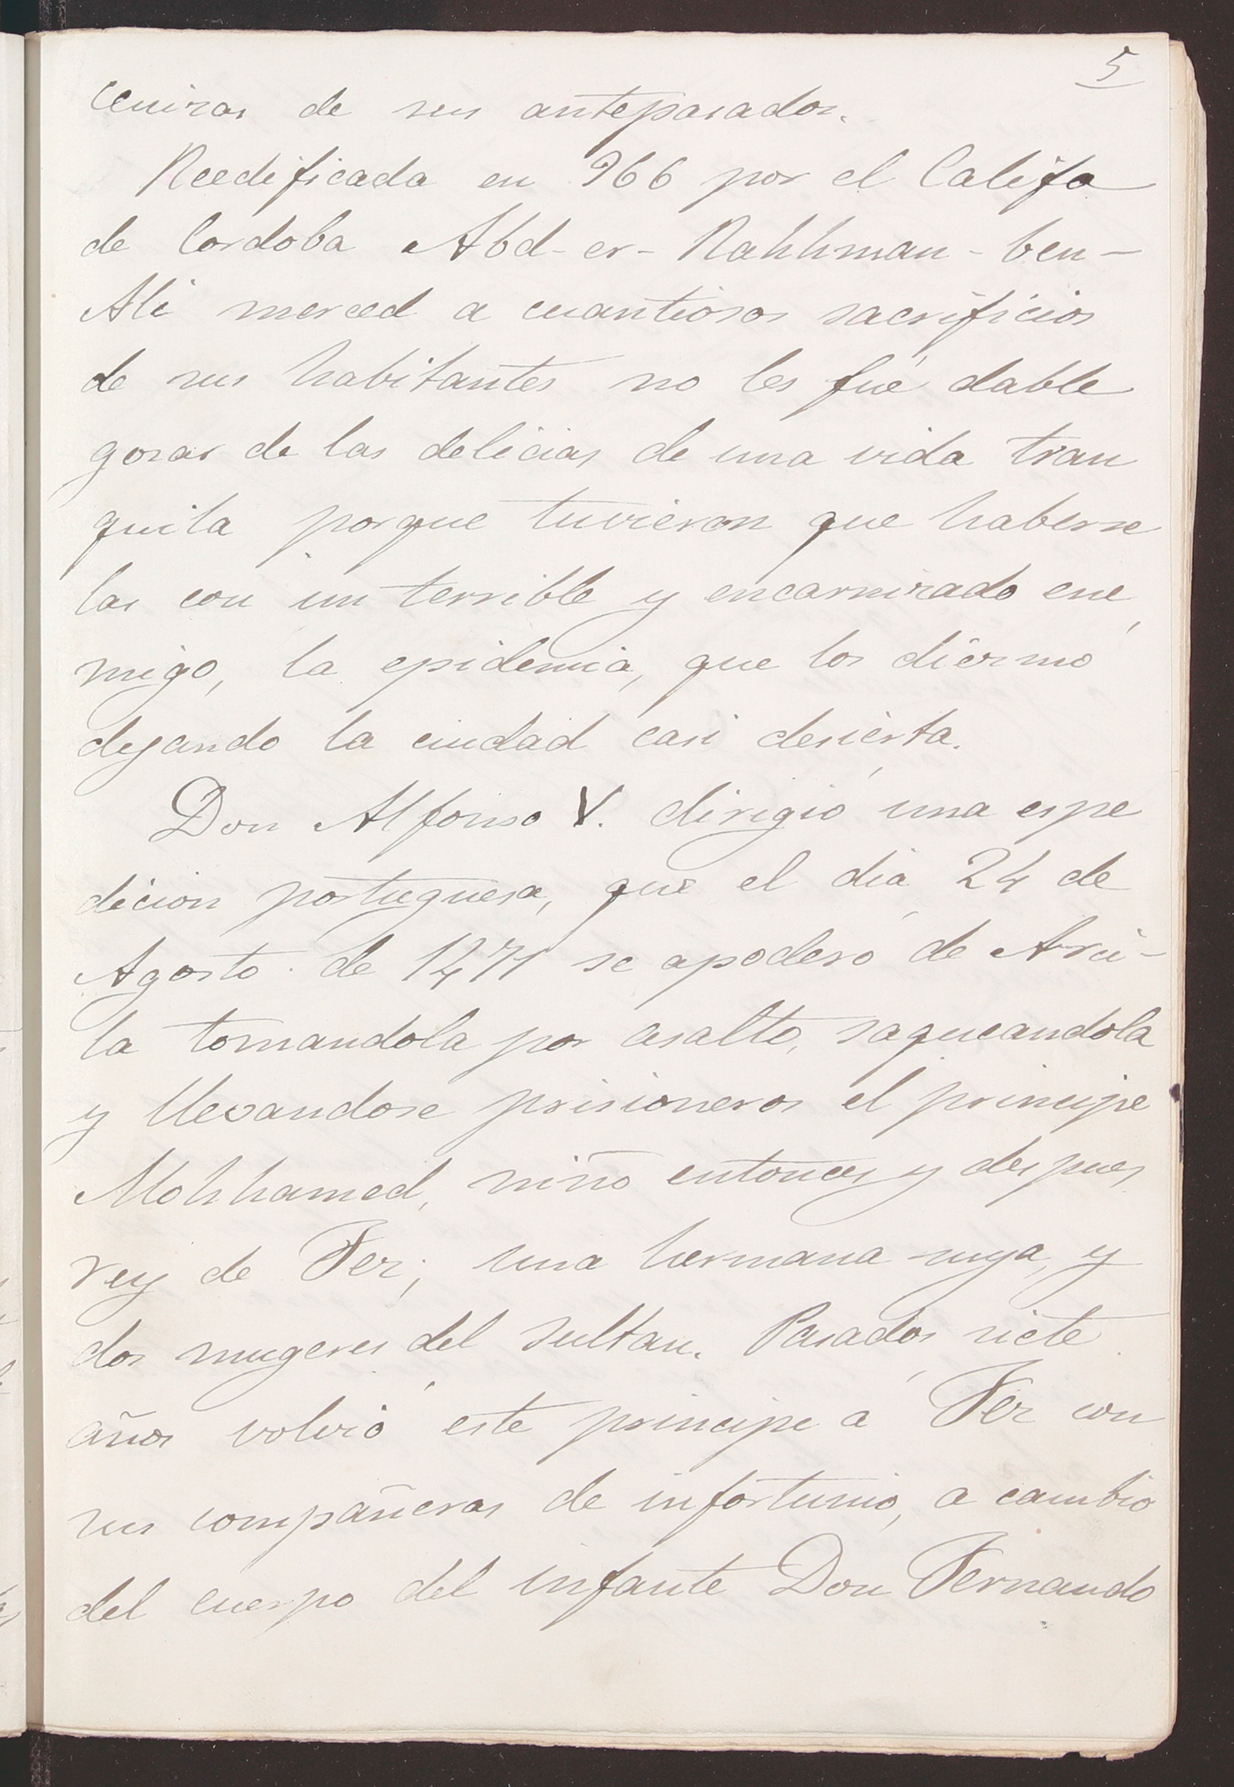 5
cenizas de sus antepasados.
Reedificada en 966 por el Califa
de Cordoba Abd-er-Rahhman-ben-
Ali merced a cuantiosos sacrificios
de sus habitantes no les fué dable
gozar de las delicias de una vida tran
quila porque tuvieron que haberse
las con un terrible y encarnizado ene
migo, la epidemia, que los diezmó
dejando la ciudad casi desierta.
Don Alfonso V. dirigió una espe
dicion portuguesa, que el dia 24 de
Agosto de 1471 se apoderó de Arci-
la tomandola por asalto, saqueandola
y llevandose prisioneros el principe
Mohhamed, niño entonces y despues
rey de Fez; una hermana suya, y
dos mugeres del sultan. Pasados siete
años volvió este principe á Fez con
sus compañeras de infortunio, a cambio
del cuerpo del infante Don Fernando